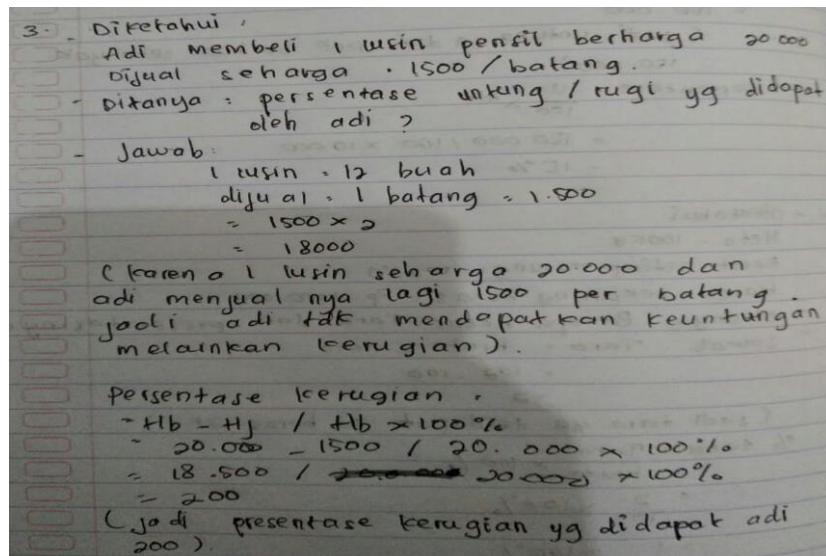 3. - Diketahui :
Adi membeli 1 lusin pensil berharga 20 000
Dijual seharga . 1500 / batang.
- Ditanya : persentase untung / rugi yg didapat
oleh adi ?
- Jawab :
1 lusin = 12 buah
dijual = 1 batang = 1.500
= 1500 x 2
= 18000
( karena 1 lusin seharga 20.000 dan
adi menjual nya lagi 1500 per batang.
jadi adi tdk mendapatkan keuntungan
melainkan kerugian ).
persentase kerugian .
= Hb - Hj / Hb x 100 %
= 20.000 - 1500 / 20. 000 x 100 %
= 18.500 / 20.000 x 100 %
= 200
( jadi presentase kerugian yg didapat adi
200 )